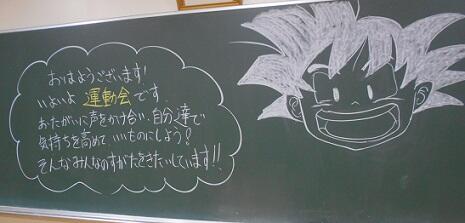 おはようございます!
いよいよ 運動会 です
おたがいに声をかけ合い、自分達で
気持ちを高めて いいものにしよう!
そんなみんなのすがたをきたいしています!!